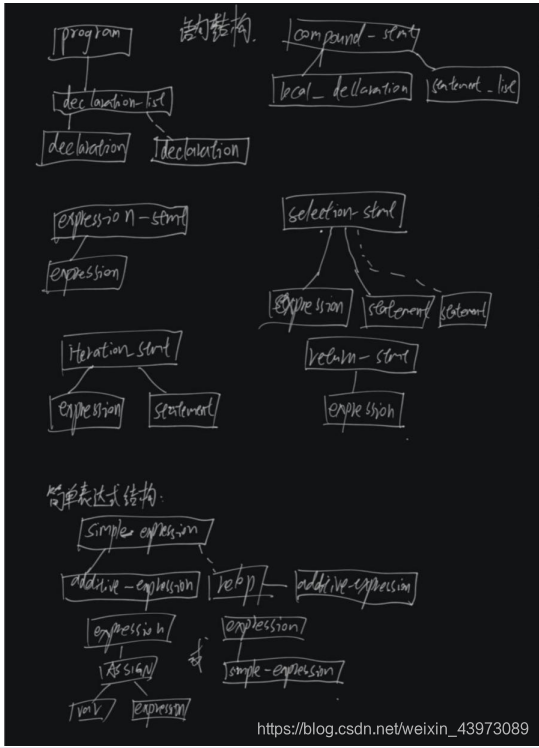 program
语句结构.
compound-stmt
declaration_list
local_declaration
statement_list
declaration
declaration
expression-stmt
selection-stmt
expression
expression
statement
statement
iteration_stmt
return-stmt
expression
statement
expression
简单表达式结构:
simple expression
additive-expression
relop
additive-expression
expression
expression
ASSIGN
或
simple-expression
var
expression
https://blog.csdn.net/weixin_43973089